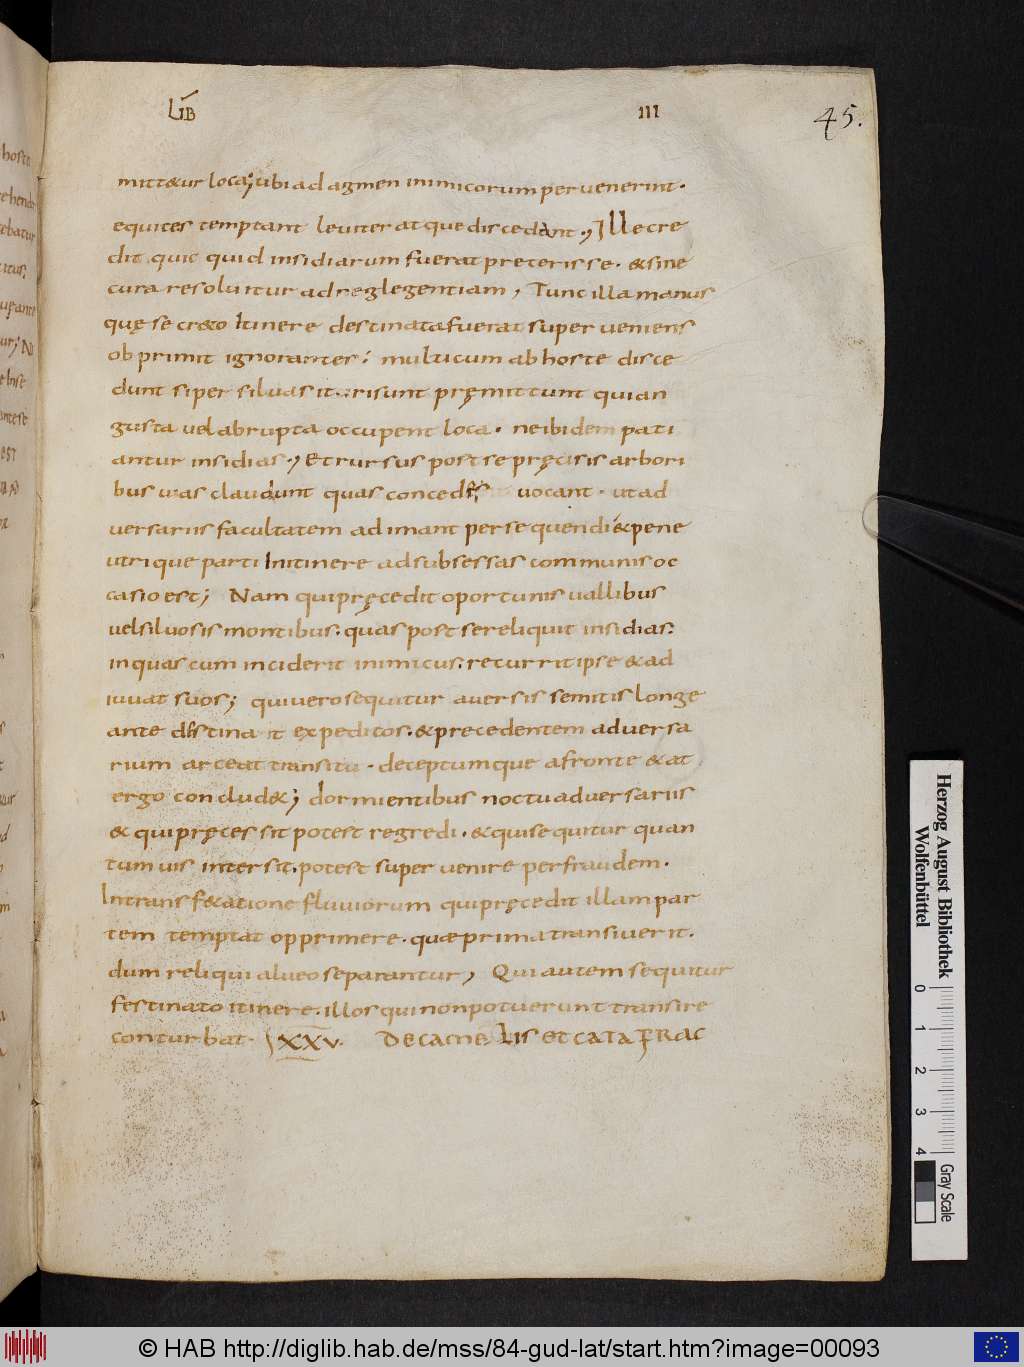 LIB III 45.
mittetur loca; ubi ad agmen inimicorum pervenerint.
equites temptant leviter atque discedant., Ille cre
dit quic quid insidiarum fuerat preterisse. & sine
cura resoluitur ad neglegentiam, Tunc illa manus
quę secr&o Itinere destinata fuerat super veniens
ob primit ignorantes; multi cum ab hoste disce
dunt si per siluas it risunt pręmittunt qui an
gusta vel abrupta occupent loca. ne ibidem pati
antur insidias., Et rursus post se pręcisis arbori
bus uias claudunt quas concedes vocant. ut ad
versariis facultatem adimant persequendi & pene
utrique parti Initinere ad subsessas communis oc
casio est; Nam qui pręcedit oportunis vallibus
vel silvosis montibus. quas post se reliquit insidias.
in quas cum inciderit inimicus. recurrit ipse & ad
iuuat suos; qui vero sequitur aversis semitis longe
ante destina it expeditos. & precedentem adversa
rium arceat transitu. deceptumque a fronte & a t
ergo conclud&; dormientibus noctu adversariis
& qui pręcessit potest regredi. & qui sequitur quan
tum uis inter sit. potest super venire per fraudem.
In transf&atione fluviorum qui pręcedit illam par
tem temptat opprimere. quæ prima transiverit.
dum reliqui alveo separantur, Qui autem sequitur
festinato itinere. illos qui non potuerunt transire
conturbat. XXV. DE CAMELIS ET CATAPRAC
Herzog August Bibliothek
Wolfenbüttel
0 1 2 3 4
Gray Scale
© HAB http://diglib.hab.de/mss/84-gud-lat/start.htm?image=00093